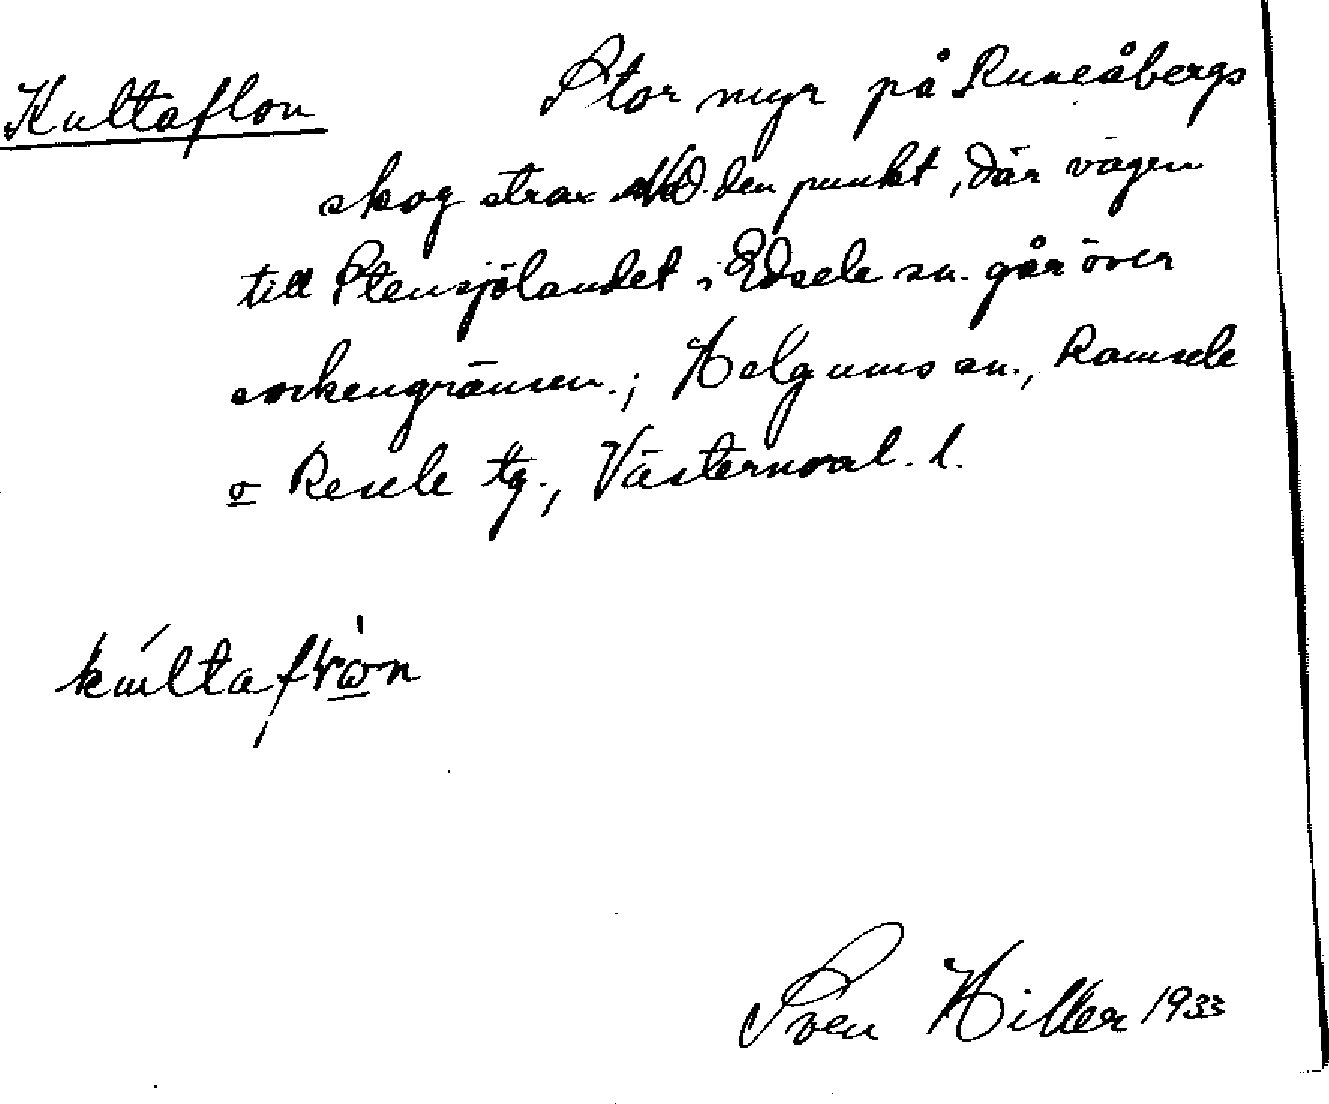 Kultaflon
Stor myr på Runeåbergs
skog strax NO. den punkt, där vägen
till Stensjölandet i Edsele sn. går över
sockengränsen.; Helgums sn., Ramsele
o Resele tg., Västernorrl. l.
Sven Hiller 1933